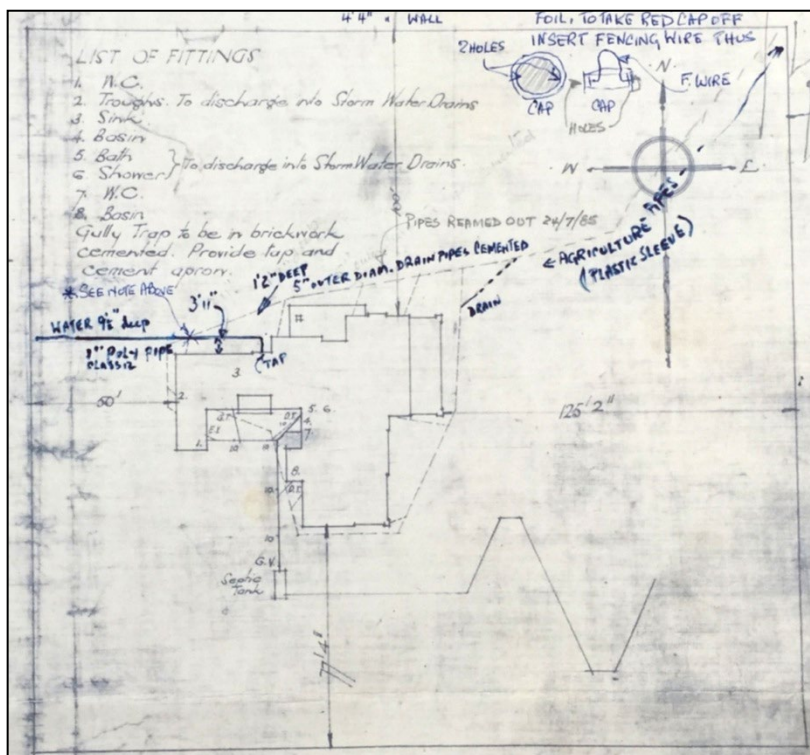 4'4" WALL
FOIL, TO TAKE RED CAP OFF
INSERT FENCING WIRE THUS
2 HOLES
N
F. WIRE
CAP
CAP
HOLES
W
E
LIST OF FITTINGS
1. W.C.
2. Troughs. To discharge into Storm Water Drains
3. Sink
4. Basin
5. Bath
6. Shower
To discharge into Storm Water Drains.
7. W.C.
8. Basin
Gully Trap to be in brickwork
cemented. Provide tap and
cement apron.
* SEE NOTE ABOVE
PIPES REAMED OUT 24/7/85
1'2" DEEP
5" OUTER DIAM. DRAIN PIPES CEMENTED
← AGRICULTURE PIPES
(PLASTIC SLEEVE)
DRAIN
3'11"
WATER 9½" deep
1" POLY PIPE
TAP
3
2
50'
125' 2"
5. 6.
4.
7.
1.
8.
G.V.
Septic
Tank
71'4"